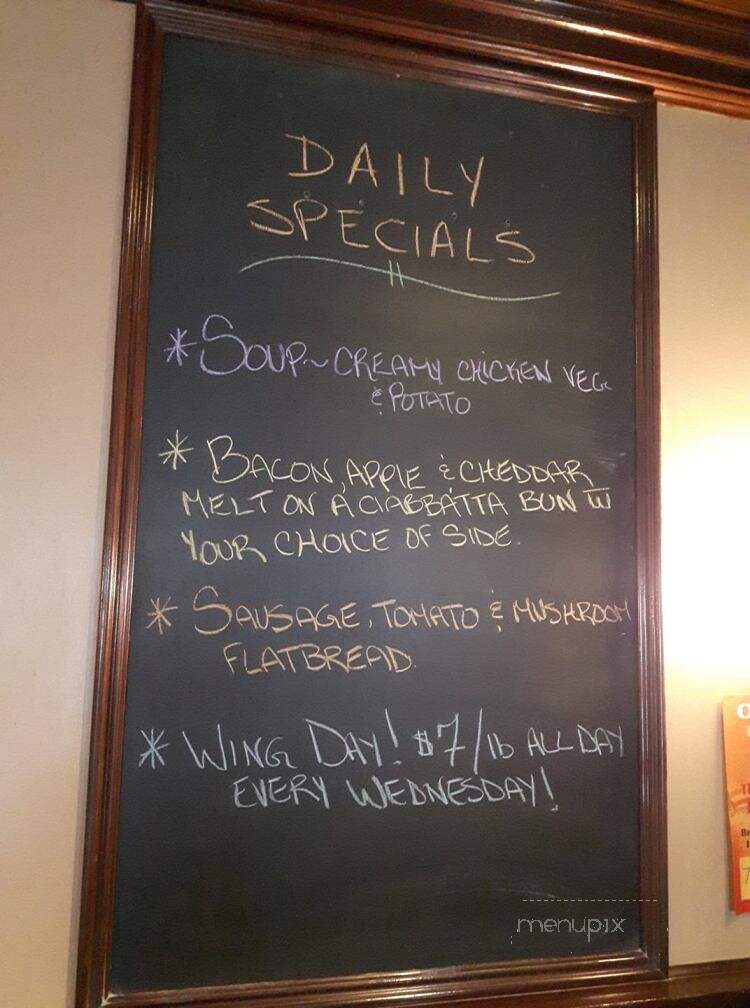 DAILY
SPECIALS
* SOUP~ CREAMY CHICKEN VEG
& POTATO
* BACON, APPLE & CHEDDAR
MELT ON A CIABBATTA BUN W
YOUR CHOICE OF SIDE.
* SAUSAGE, TOMATO & MUSHROOM
FLATBREAD.
* WING DAY! $7/lb ALL DAY
EVERY WEDNESDAY!
menupix